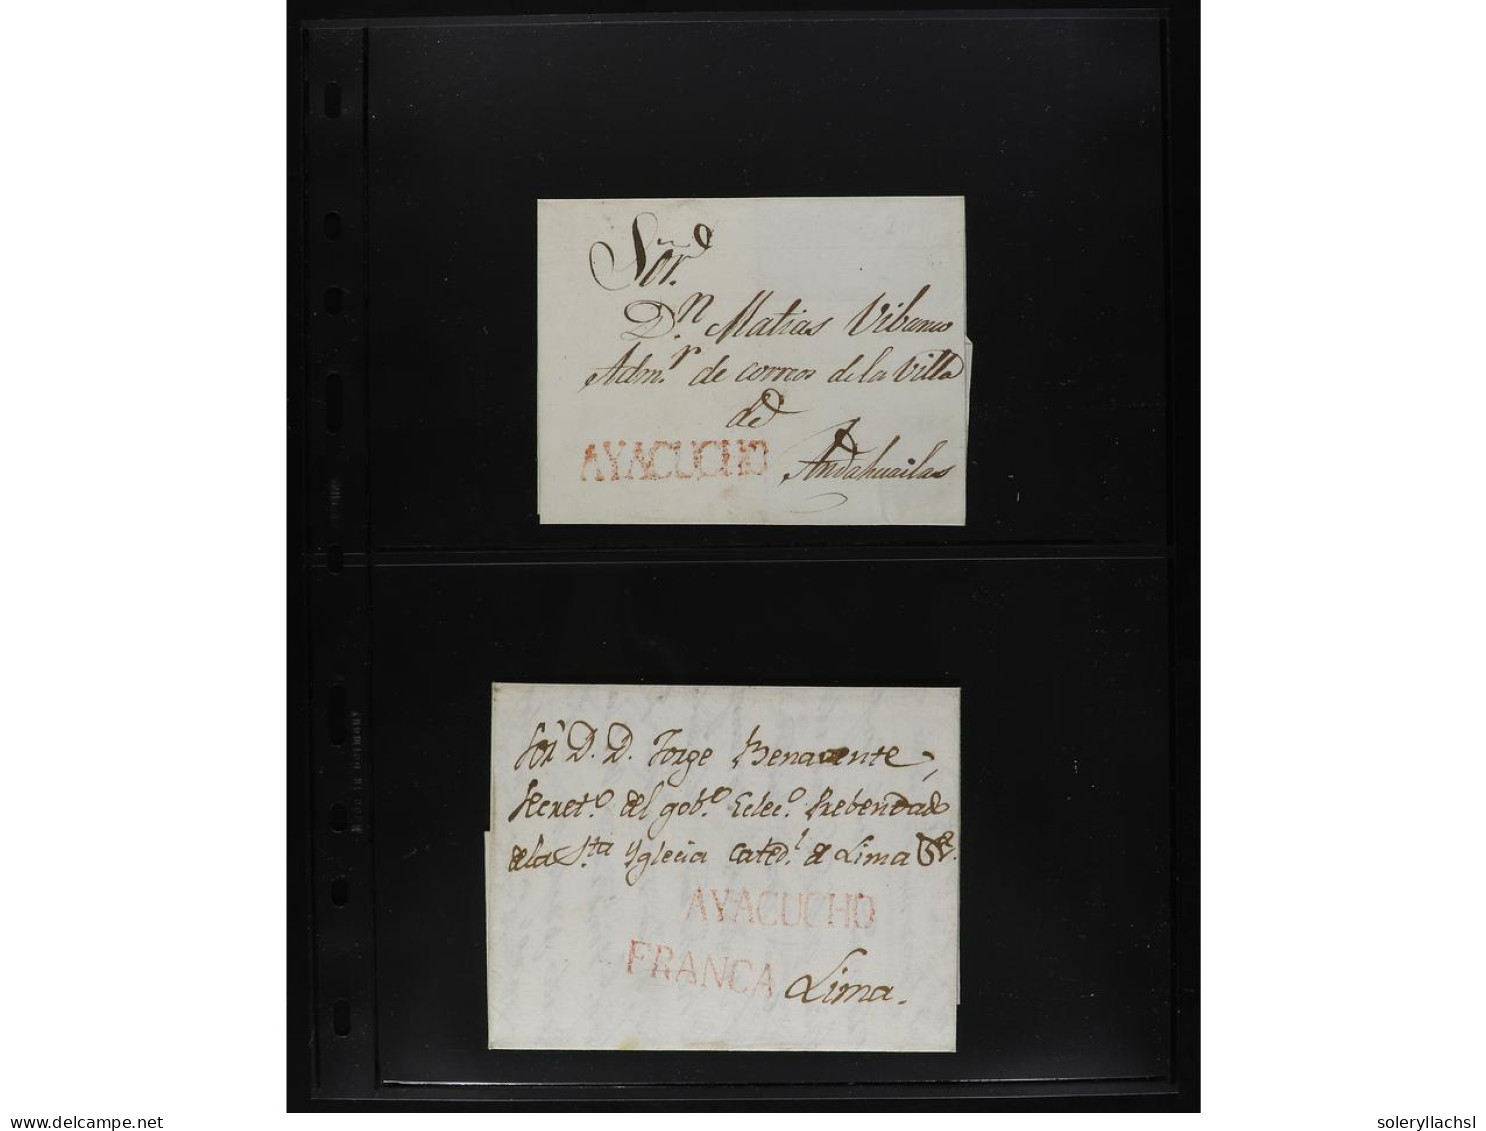 Sor.
Dn. Matias Vibanco
Admr. de correos de la Villa
de
AYACUCHO Andahuailas
Sor. D. D. Jorge Benavente,
Secreto. del gobo. Ecleco. Prebendado
de la Sta. Yglecia Catedl. de Lima
AYACUCHO
FRANCA Lima.
Made in Germany
delcampe.net
soleryllachsl